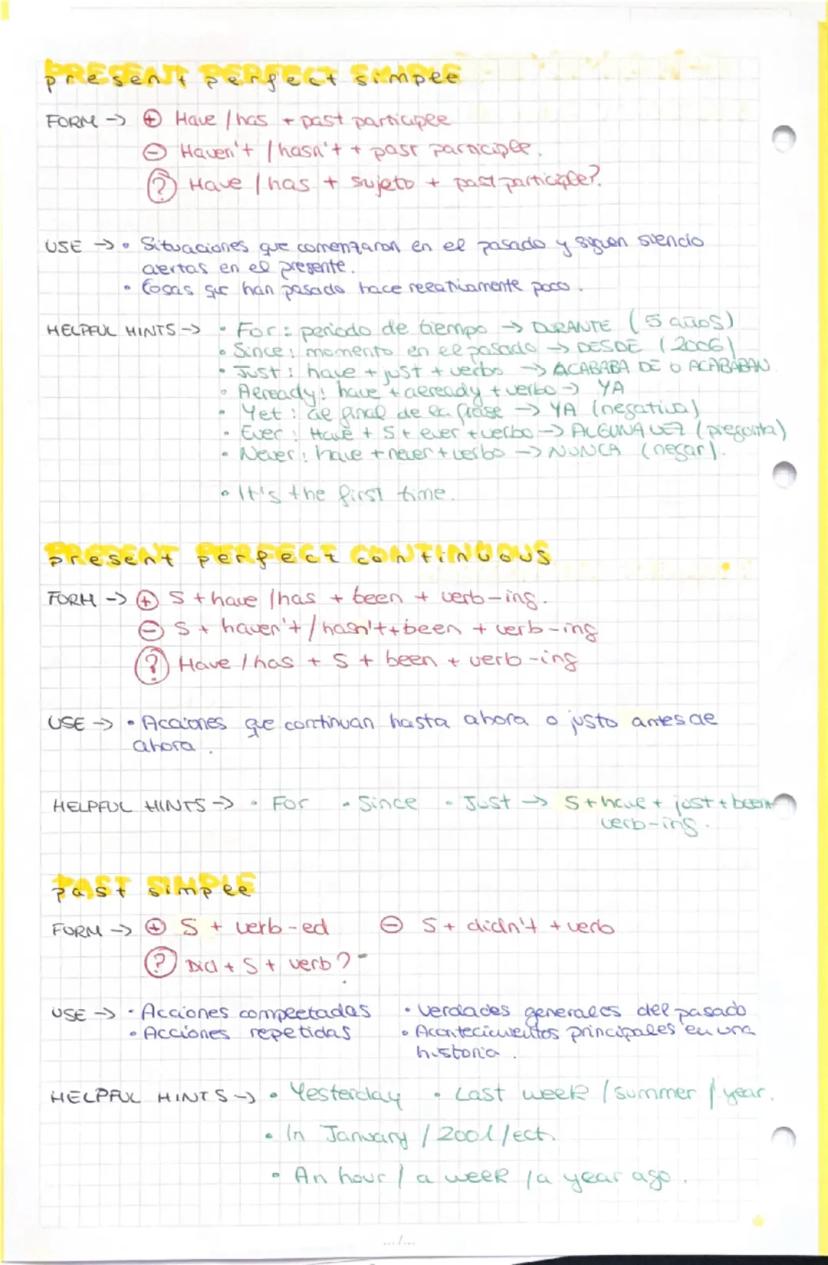 present perfect simple
FORM → + Have / has + past participle
- Haven't / hasn't + past participle.
? Have / has + sujeto + past participle?
USE → • Situaciones que comenzaron en el pasado y siguen siendo
abiertas en el presente.
• Cosas que han pasado hace relativamente poco.
HELPFUL HINTS → • For: periodo de tiempo → DURANTE (5 años)
• Since: momento en el pasado → DESDE (2006)
• Just: have + just + verbo → ACABABA DE O ACABABAN
• Already: have + already + verbo → YA
• Yet: al final de la frase → YA (negativa)
• Ever: Have + S + ever + verbo → ALGUNA VEZ (pregunta)
• Never: have + never + verbo → NUNCA (negar).
• It's the first time.
present perfect continuous
FORM → + S + have / has + been + verb-ing.
- S + haven't / hasn't + been + verb-ing
? Have / has + S + been + verb-ing
USE → • Acciones que continuan hasta ahora o justo antes de
ahora.
HELPFUL HINTS → • For • Since • Just → S + have + just + been
verb-ing.
past simple
FORM → + S + verb-ed - S + didn't + verb
? Did + S + verb?
USE → • Acciones completadas • Verdades generales del pasado
• Acciones repetidas • Acontecimientos principales en una
historia.
HELPFUL HINTS → • Yesterday • Last week / summer / year.
• In January / 2001 / ect.
• An hour / a week / a year ago.
.../...